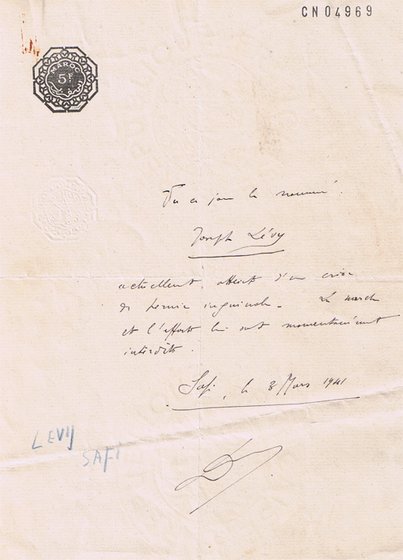 CN04969
MAROC
5F
Vu ce jour le nommé
Joseph Lévy
actuellement, atteint d'une crise
de hernie inguinale. La marche
et l'effort lui sont momentanément
interdits.
Safi, le 8 Mars 1941
LEVIJ
SAFI